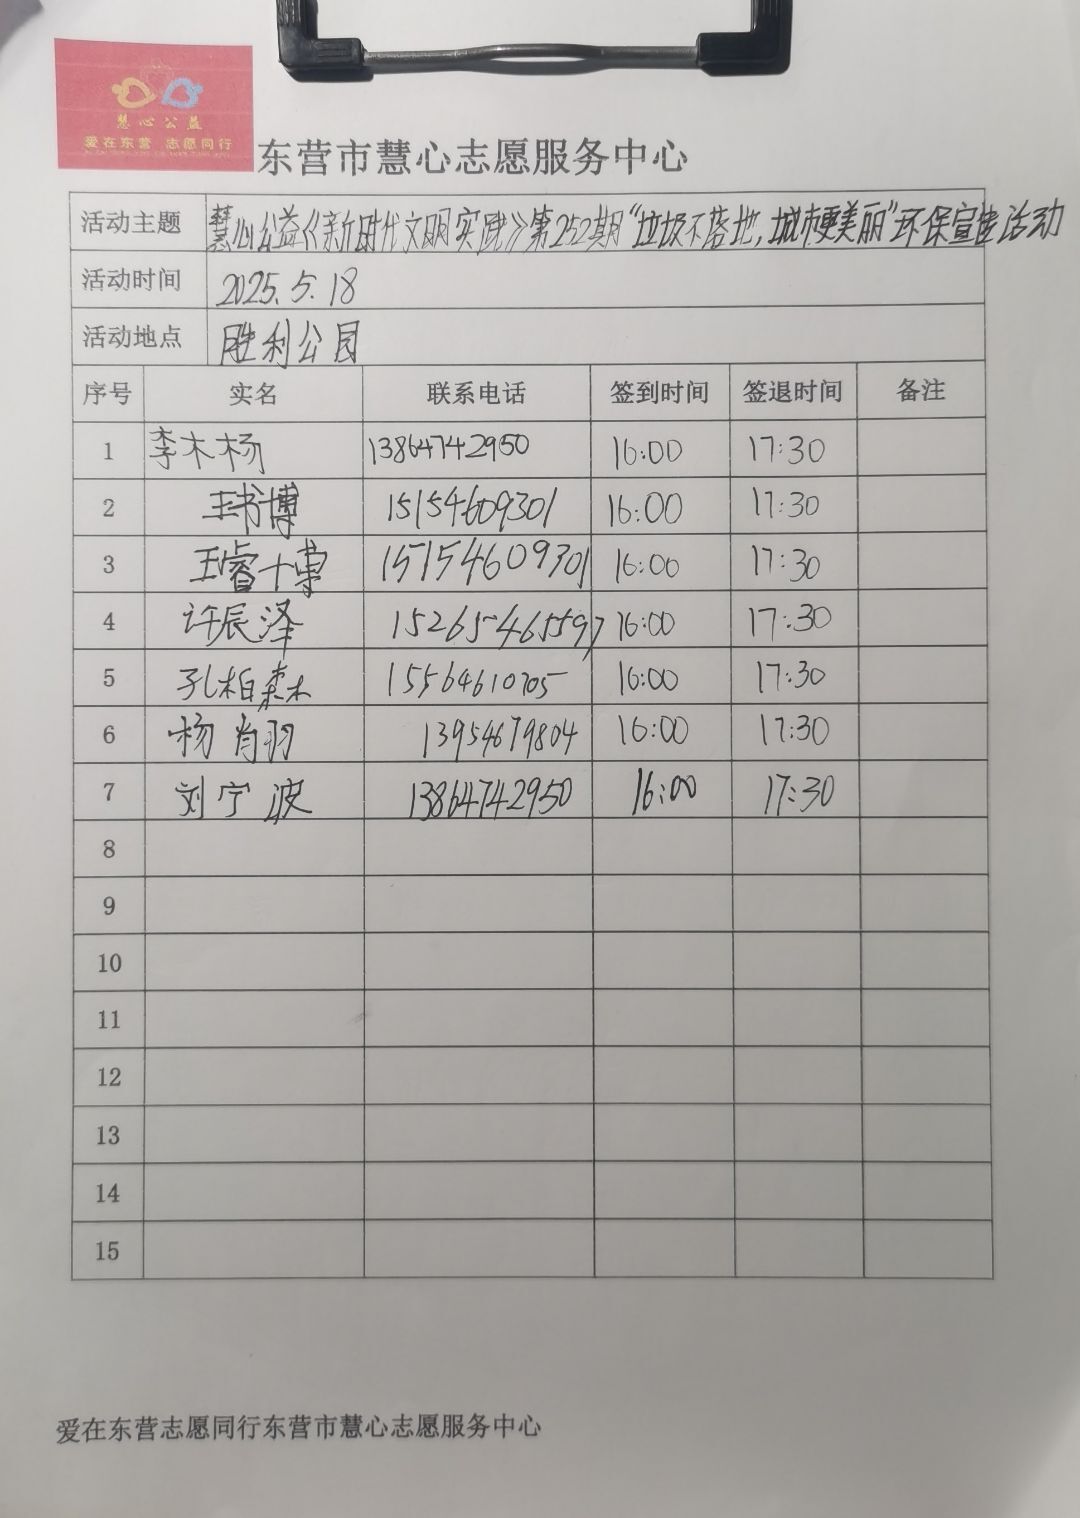 慧心公益
爱在东营 志愿同行
东营市慧心志愿服务中心
活动主题 慧心公益《新时代文明实践》第252期“垃圾不落地,城市更美丽”环保宣传活动
活动时间 2025.5.18
活动地点 胜利公园
序号 实名 联系电话 签到时间 签退时间 备注
1 李木杨 13864742950 16:00 17:30
2 王书博 15154609301 16:00 17:30
3 王睿博 15154609301 16:00 17:30
4 许辰泽 15265465597 16:00 17:30
5 孔柏森 15564610705 16:00 17:30
6 杨肖羽 13954679804 16:00 17:30
7 刘宁波 13864742950 16:00 17:30
8
9
10
11
12
13
14
15
爱在东营志愿同行东营市慧心志愿服务中心